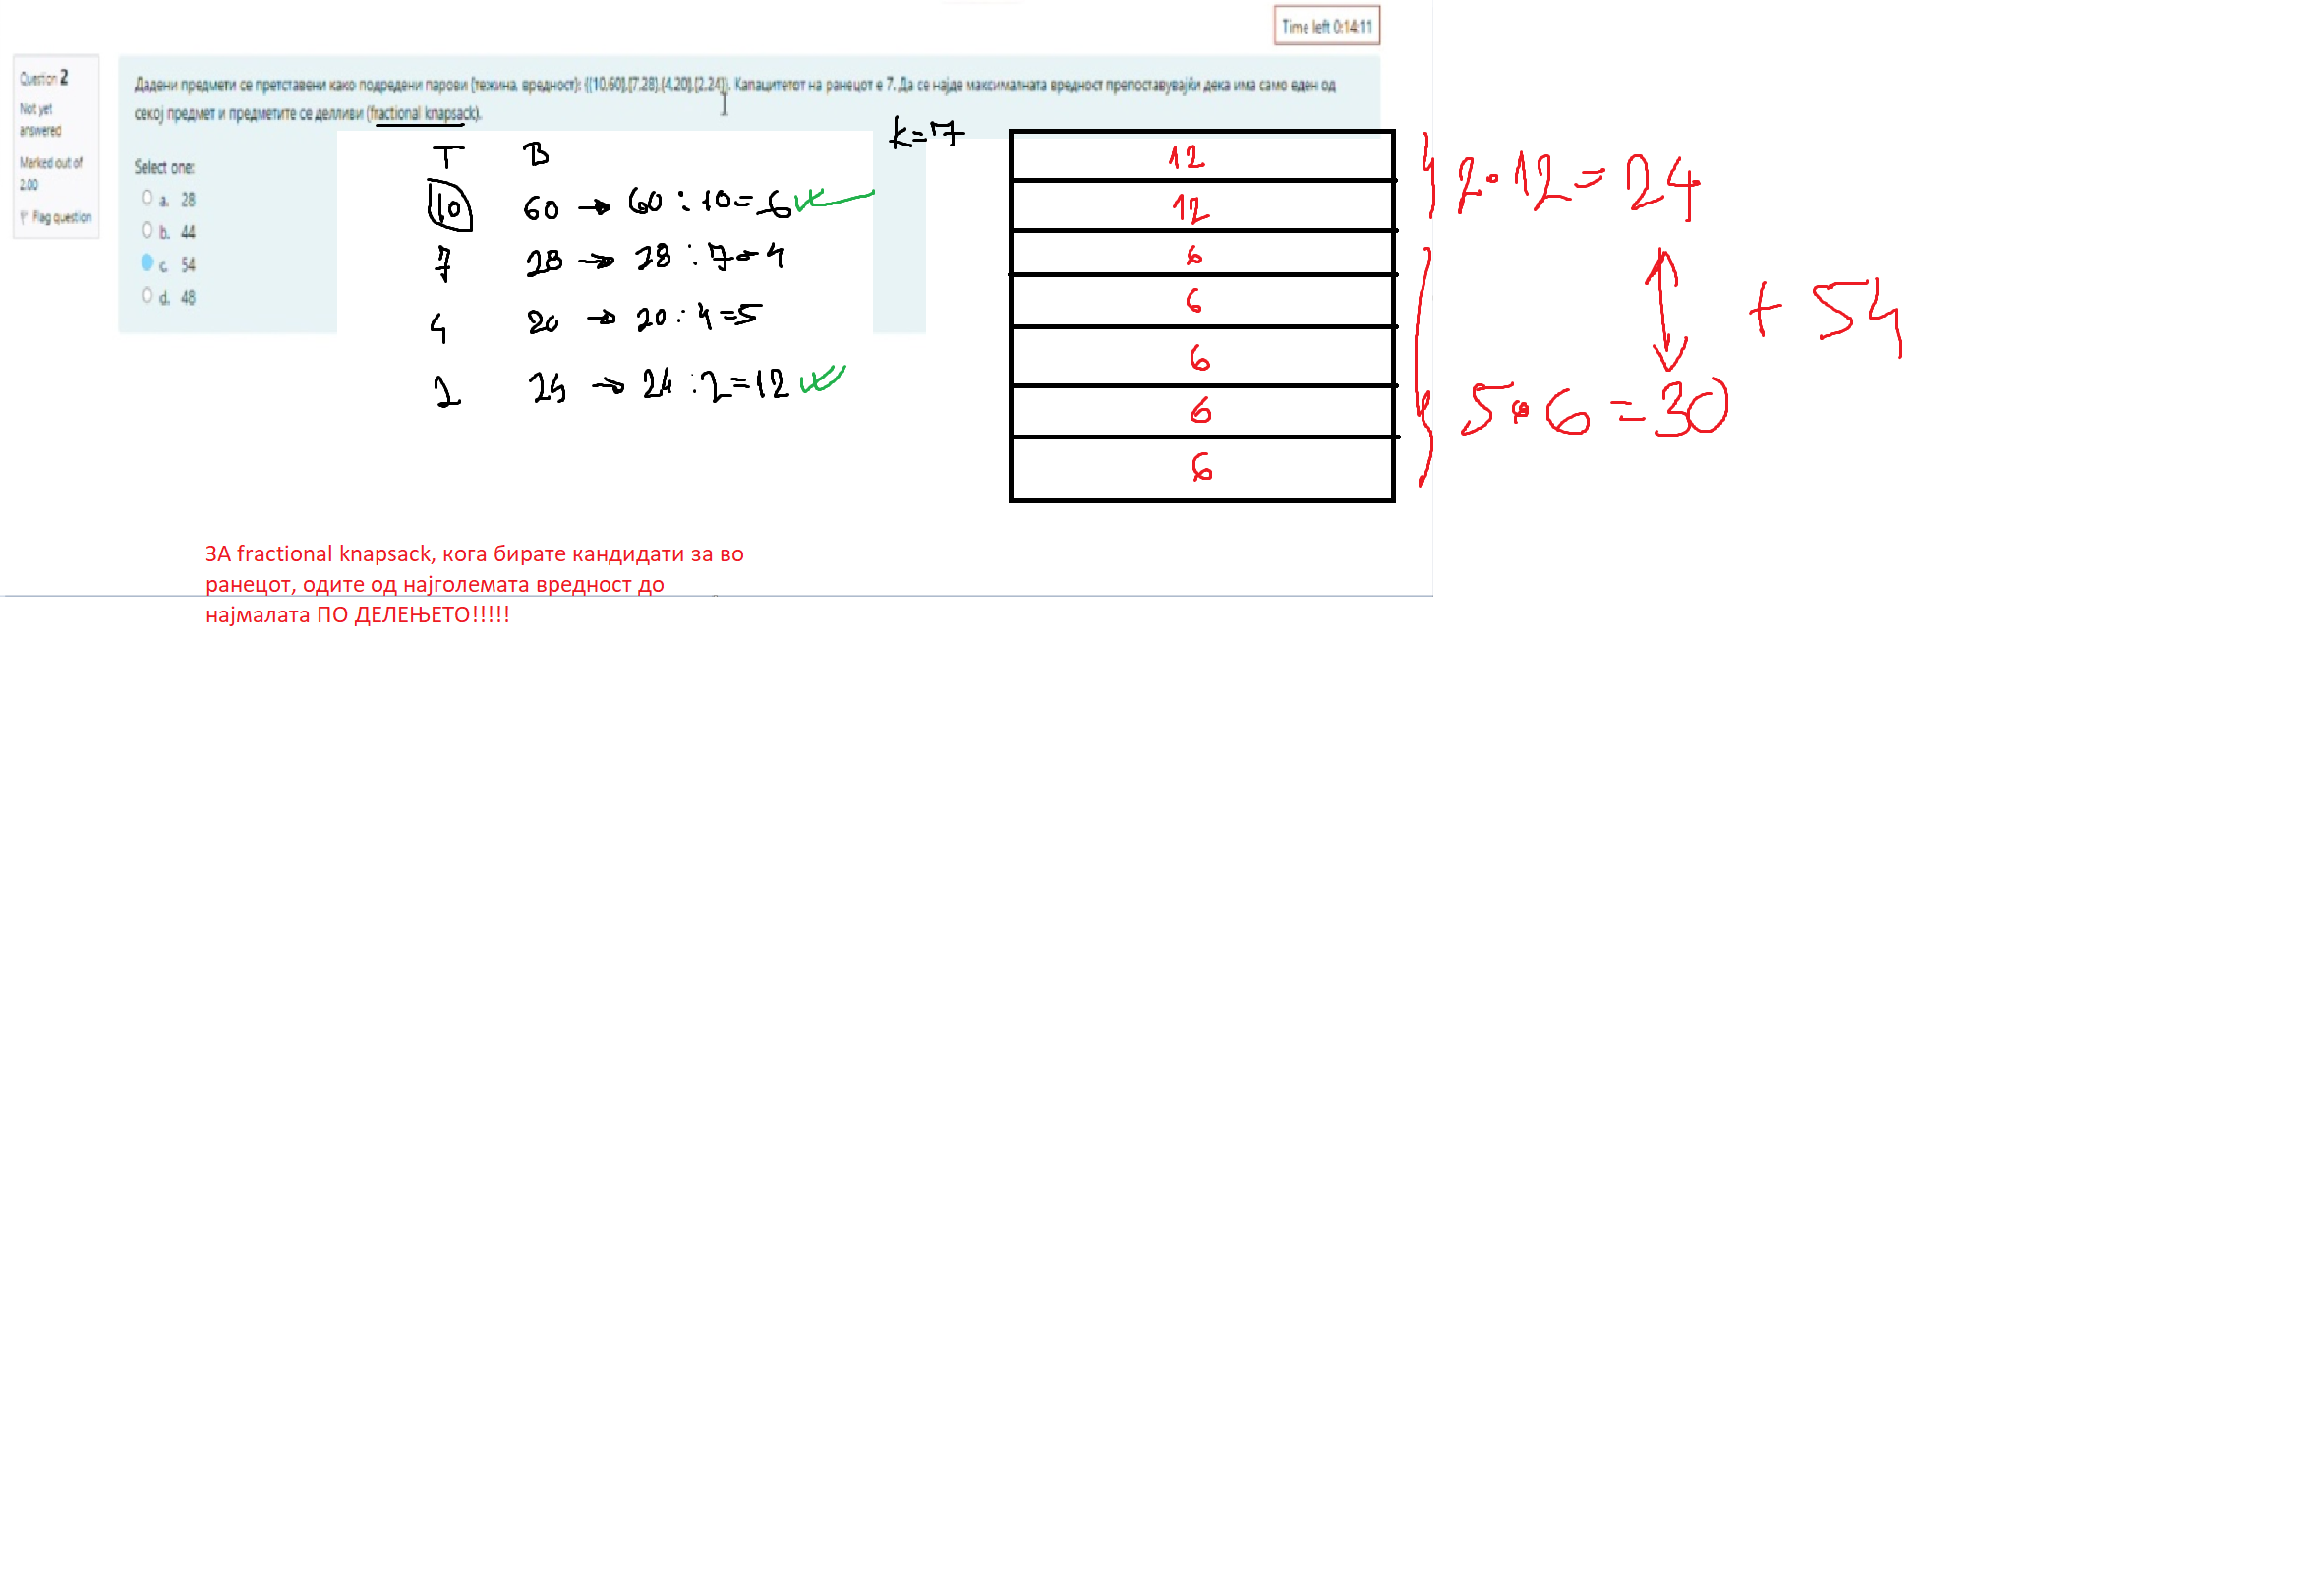 Time left 0:14:11
Question 2
Not yet
answered
Marked out of
2.00
Flag question
Дадени предмети се претставени како подредени парови (тежина, вредност): {(10,60),(7,28),(4,20),(2,24)}. Капацитетот на ранецот е 7. Да се најде максималната вредност препоставувајќи дека има само еден од
секој предмет и предметите се делливи (fractional knapsack).
Select one:
a. 28
b. 44
c. 54
d. 48
T B
10 60 → 60 : 10 = 6
7 28 → 28 : 7 = 4
4 20 → 20 : 4 = 5
2 24 → 24 : 2 = 12
k=7
12
12
6
6
6
6
6
2·12=24
+ 54
5·6=30
ЗА fractional knapsack, кога бирате кандидати за во
ранецот, одите од најголемата вредност до
најмалата ПО ДЕЛЕЊЕТО!!!!!